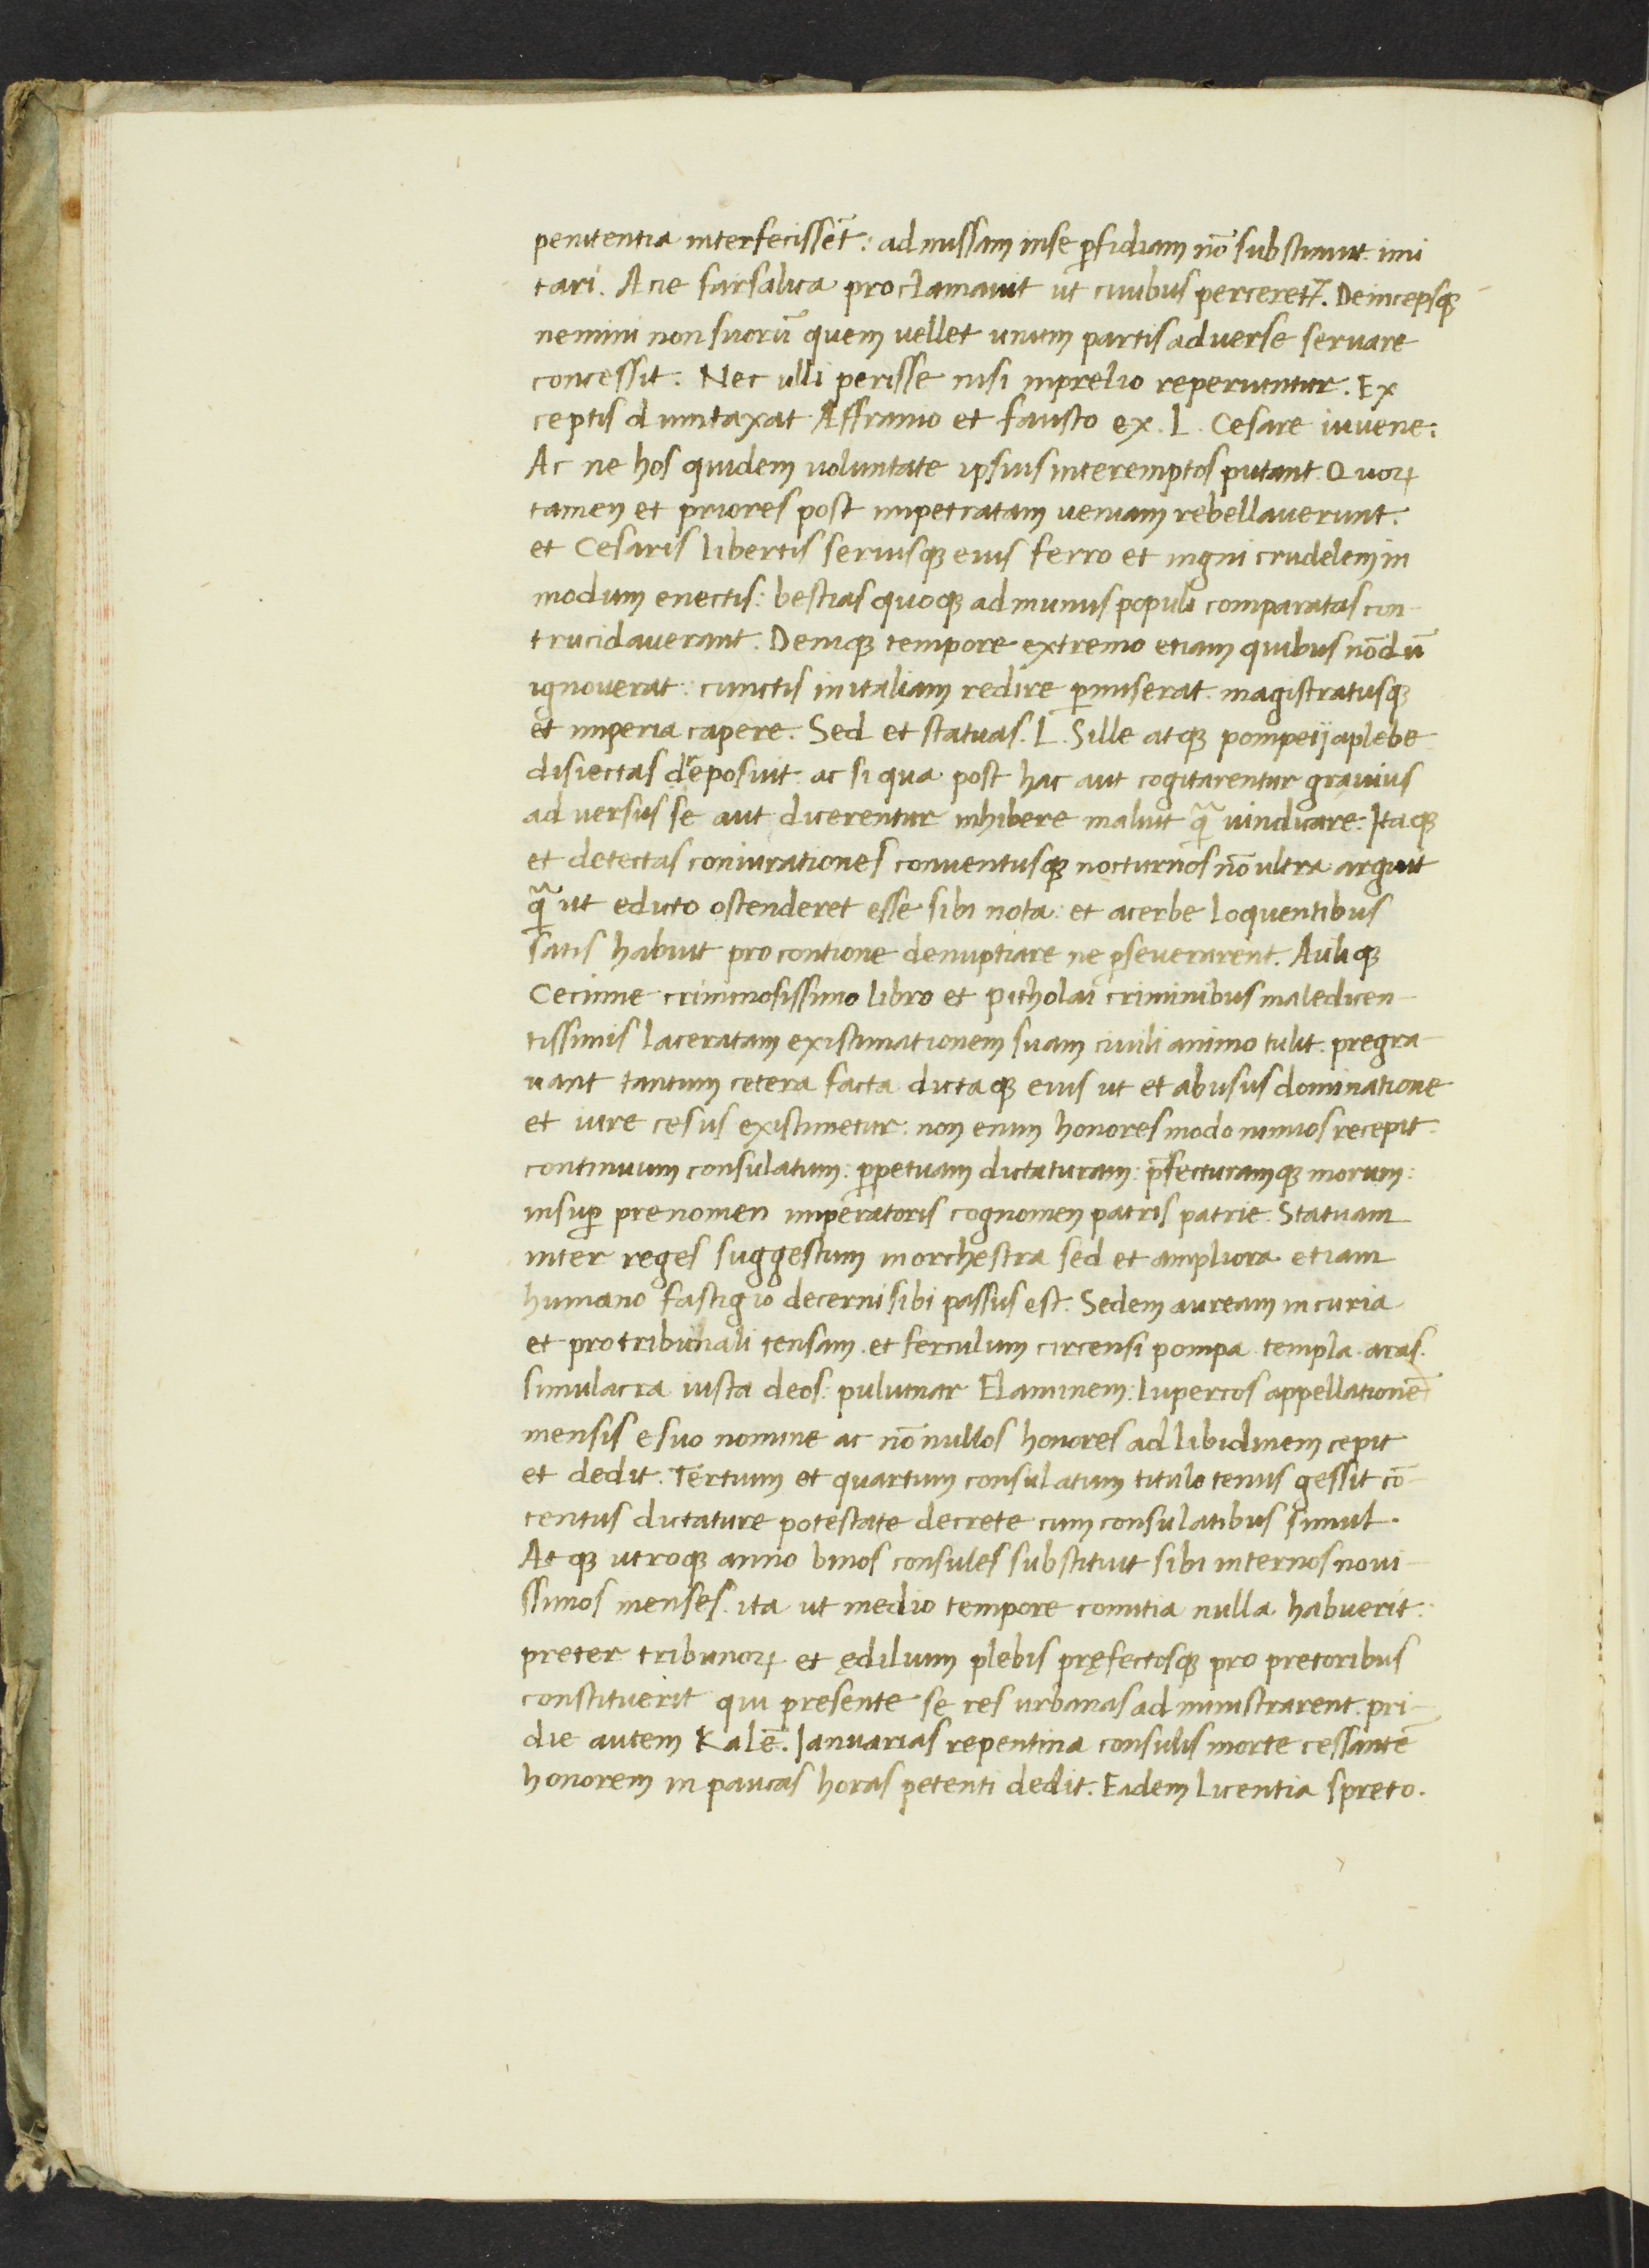 penitentia interfecissēt: admissam inse ꝑfidiam nō substinuit imi
tari. Acie farsalica proclamauit ut ciuibus perceretꝛ. Deincepsqꝫ
nemini non suorū quem uellet unum partis aduerse seruare
concessit. Nec ulli perisse nisi inprelio reperiuntur. Ex
ceptis dumtaxat Afframo et fausto ex. L. Cesare iuvene:
Ac ne hos quidem uoluntate ipsius interemptos putant. Quoꝝ
tamen et priores post impetratam ueniam rebellaverunt.
et Cesaris libertis seruisqꝫ eius ferro et ingni crudelem in
modum enectis: bestias quoqꝫ ad munus populi comparatas con-
trucidaverant. Deniqꝫ tempore extremo etiam quibus nōdū
ignoverat: cunctis initaliam redire ꝑmiserat. magistratusqꝫ
et imperia capere. Sed et statuas. L. Sille atqꝫ pompeij aplebe
disiectas dreposuit. ac si qua post hac aut cogitarentur grauius
adversus se aut dicerentur inhibere maluit qᷓ uindicare: Itaqꝫ
et detectas coniurationes conventusqꝫ nocturnos nō ultra arguit
qᷓ ut edicto ostenderet esse sibi nota: et acerbe loquentibus
satis habuit pro contione denuptiare ne ꝑseverarent. Auliqꝫ
Cecinne criminosissimo libro et pitholai criminibus maledicen-
tissimis laceratam existimationem suam ciuili animo tulit. pregra-
uant tantum cetera facta dictaqꝫ eius ut et abusus dominatione
et iure cesus existimetur. non enim honores modo nimios recepit.
continuum consulatum: ꝑpetuam dictaturam: p̄fecturamqꝫ morum:
insuꝑ prenomen imperatoris cognomen patris patrie. Statuam
inter reges suggestum inorchestra sed et ampliora etiam
humano fastigio decerni sibi passus est. Sedem auream incuria
et pro tribunali tensam. et ferculum circensi pompa. templa. aras.
simulacra iusta deos: puluinar Elaminem: lupercos appellationē
mensis e suo nomine ac nōnullos honores ad libidinem cepit
et dedit. Tertium et quartum consulatum titulo tenus gessit cō-
tentus dictature potestate decrete cum consulatibus simul.
Atqꝫ utroqꝫ anno binos consules substituit sibi internos noui-
ssimos menses. ita ut medio tempore comitia nulla habuerit:
preter tribunoꝝ et ędilium plebis pręfectosqꝫ pro pretoribus
constituerit qui presente se res urbanas administrarent. pri-
die autem Kalē. Ianuarias repentina consulis morte cessantē
honorem in paucas horas petenti dedit. Eadem licentia spreto.